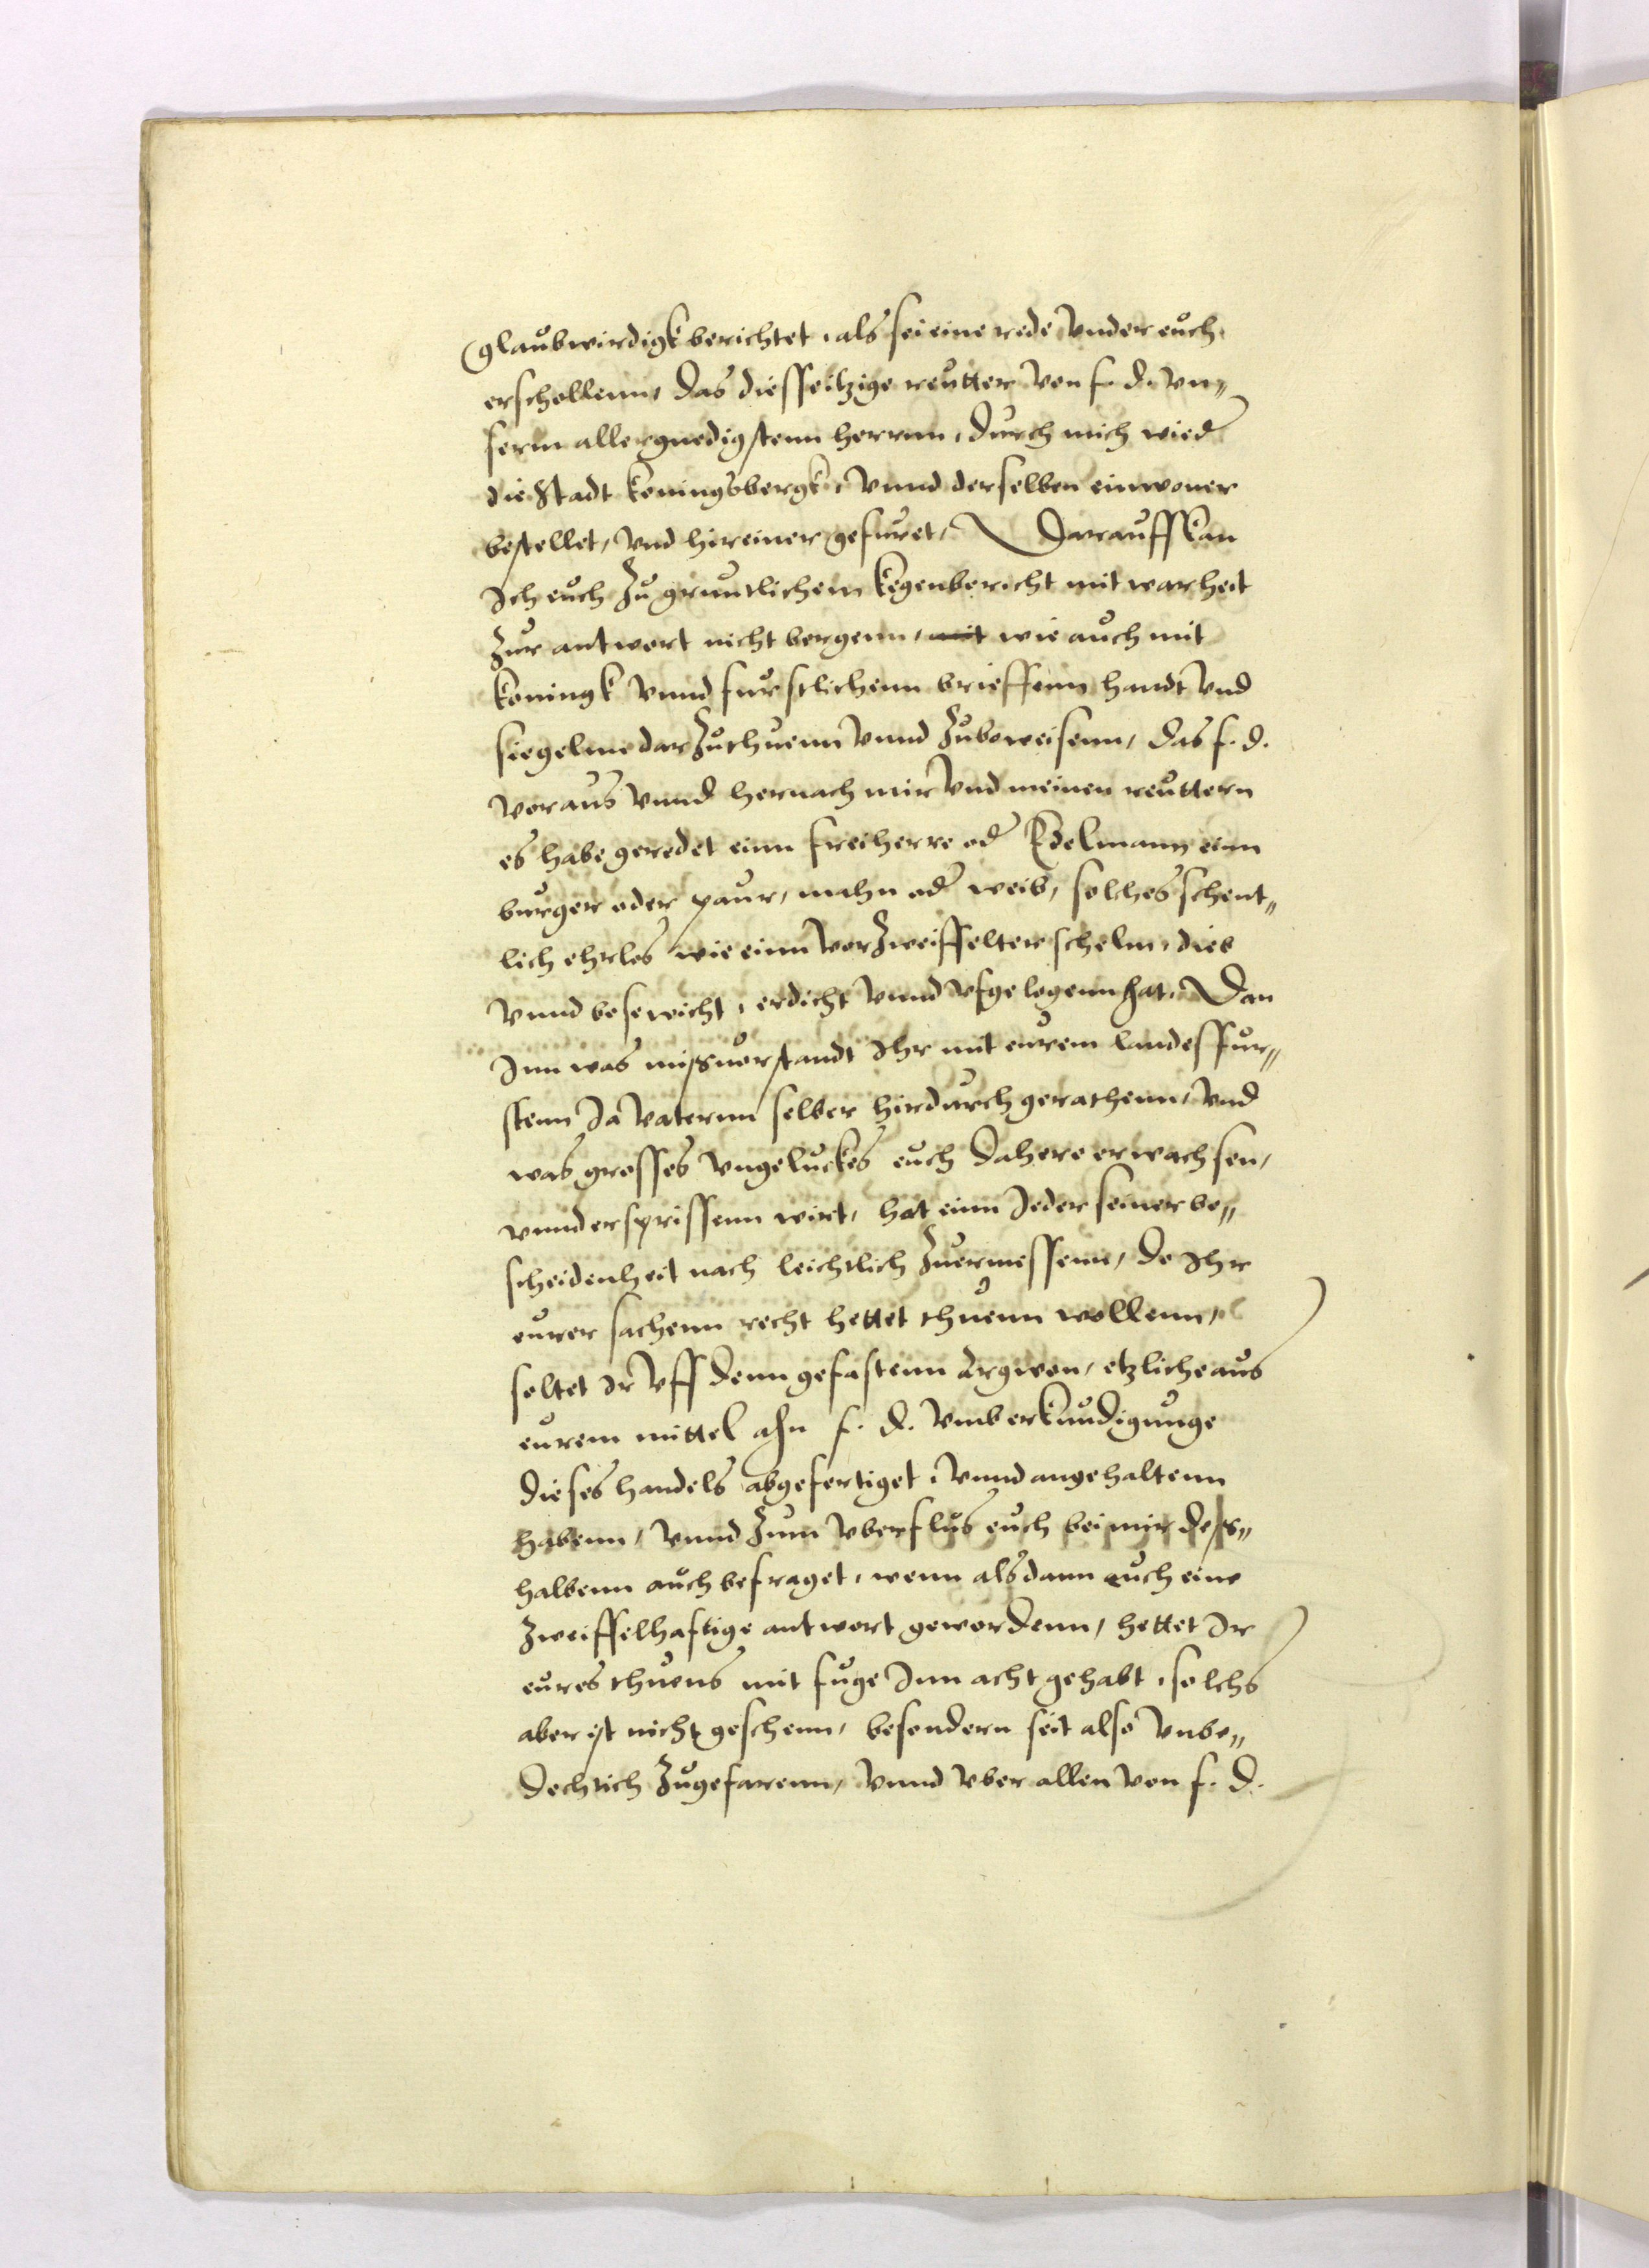 glaubwirdigk berichtet, als sei eine rede vnder euch
erschollenn, das diesse itzige reutter von f. d. vn„
serm allergnedigstenn herrnn, durch mich wied
die Stadt Koningsbergk, vnnd derselben einwoner
bestellet, vnd hireiner gefuret, Darauff kan
Ich euch zu gruntlichem kegenbericht mit warheit
zur antwort nicht bergenn, mit wie auch mit
koningk vnnd furstlichenn brieffenn handt vnd
siegelnn darzuthuenn vnnd zubeweisenn, das f. d.
voraus vnnd hernach mir vnd meinen reuttern
es habe geredet einn freiherre od Edelmann einn
burger oder paur, mahn od weib, solches schent„
lich ehrlos wie einn vorzweiffelter schelm, dieb
vnnd bosewicht, erdicht vnnd vfgelogenn hat, Dan
Inn was missuorstandt Ihr mit eurem landesfur„
stenn Ja vaternn selber hirdurch gerathenn, vnd
was grosses vngeluckes euch dahere erwachsen,
vnnd ersprissenn wirt, hat einn Jeder seiner be„
scheidenheit nach leichtlich zuermessenn, do Ihr
eurer sachenn recht hettet thuenn wollenn,
soltet Ir vff denn gefastenn argwon, etzliche aus
eurem mittel ahn f. d. vmb erkundigunge
dieses handels abgefertiget, vnnd angehaltenn
habenn, vnnd zum vberflus euch bei mir dess„
halbenn auch befraget, wenn alsdann euch eine
zweiffelhaftige antwort gewordenn, hettet Ir
eures thuens mit fuge Inn acht gehabt, solchs
aber ist nicht geschenn, besondern seit also vnbe„
dechtich zugefarenn, vnnd vber allen von f. d.